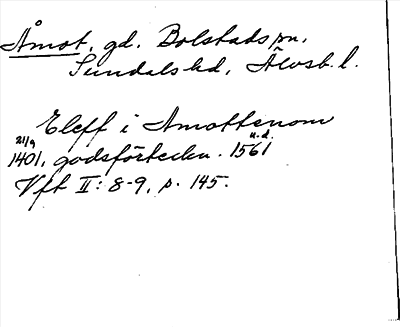 Åmot, gd. Bolstads sn,
Sundals hd, Älvsb. l.
Eleff i Amottenom
21/9 1401, godsförteckn. 1561 u.d.
Vft II: 8-9, p. 145.